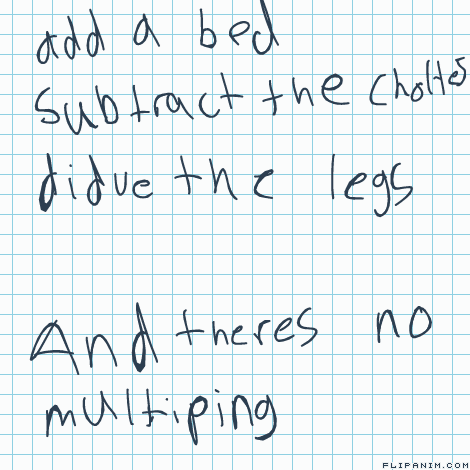 add a bed
subtract the choltes
didve the legs
And theres no
multiping
FLIPANIM.COM